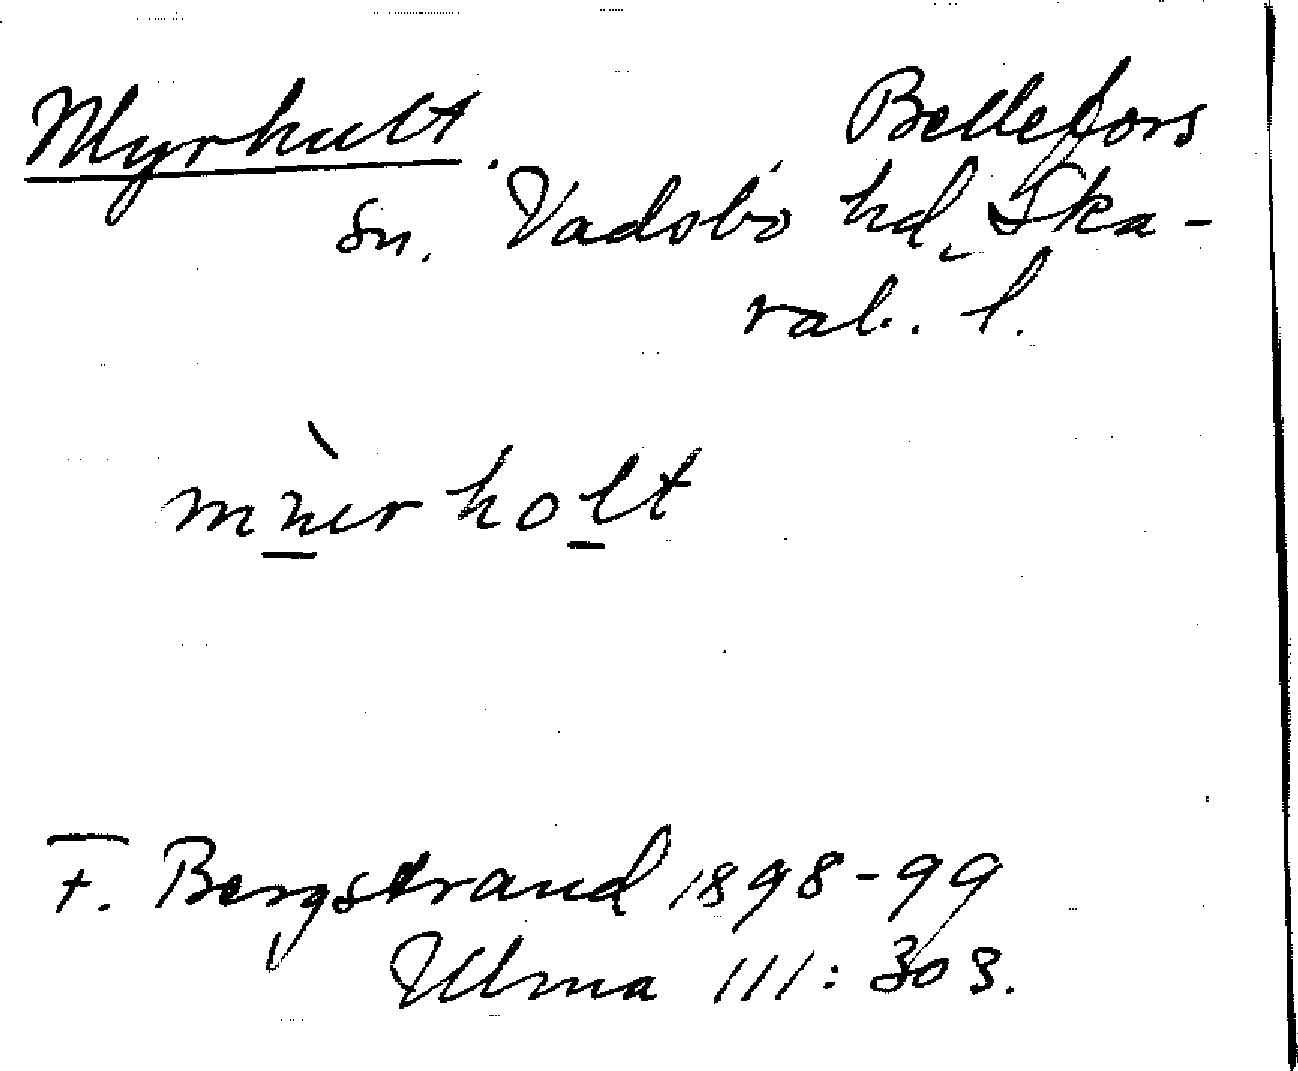 Myrhult. Bellefors
sn. Vadsbo hd, Ska-
rab. l.
mỳerholt
F. Bergstrand 1898-99
Ulma 111:303.